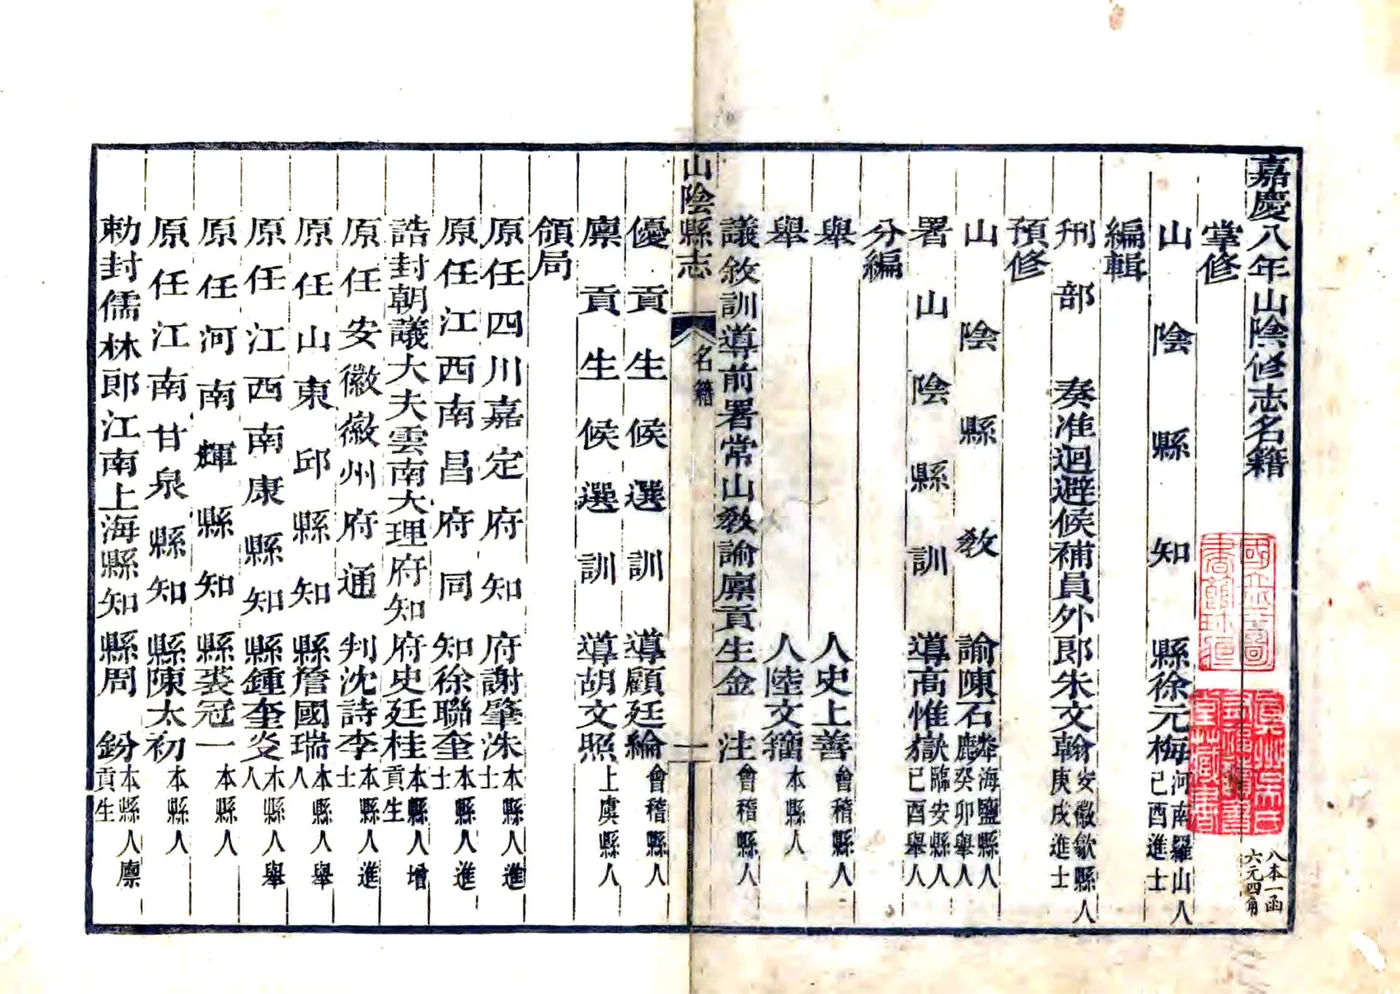 嘉慶八年山陰修志名籍
掌修
山陰縣知縣徐元梅河南羅山人己酉進士
編輯
刑部奏准迴避候補員外郎朱文翰安徽歙縣人庚戌進士
預修
山陰縣教諭陳石麟海鹽縣人癸卯舉人
署山陰縣訓導高惟嶽臨安縣人己酉舉人
分編
舉人史上善會稽縣人
舉人陸文籀本縣人
議敘訓導前署常山教諭廩貢生金注會稽縣人
山陰縣志
名籍
一
優貢生候選訓導顧廷綸會稽縣人
廩貢生候選訓導胡文照上虞縣人
領局
原任四川嘉定府知府謝肇洙本縣人進士
原任江西南昌府同知徐聯奎本縣人進士
誥封朝議大夫雲南大理府知府史廷桂本縣人增貢生
原任安徽徽州府通判沈詩李本縣人進士
原任山東邱縣知縣詹國瑞本縣人舉人
原任江西南康縣知縣鍾奎炎本縣人舉人
原任河南輝縣知縣裘冠一本縣人
原任江南甘泉縣知縣陳太初本縣人
勅封儒林郎江南上海縣知縣周鈖本縣人廩貢生
八本一函
六元四角